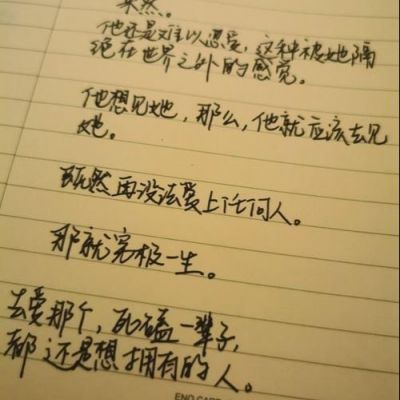 果然。
他还是难以忍受,这种被她隔
绝在世界之外的感觉。
他想见她,那么,他就应该去见
她。
既然再没法爱上任何人。
那就穷极一生。
去爱那个,死磕一辈子,
都还是想拥有的人。